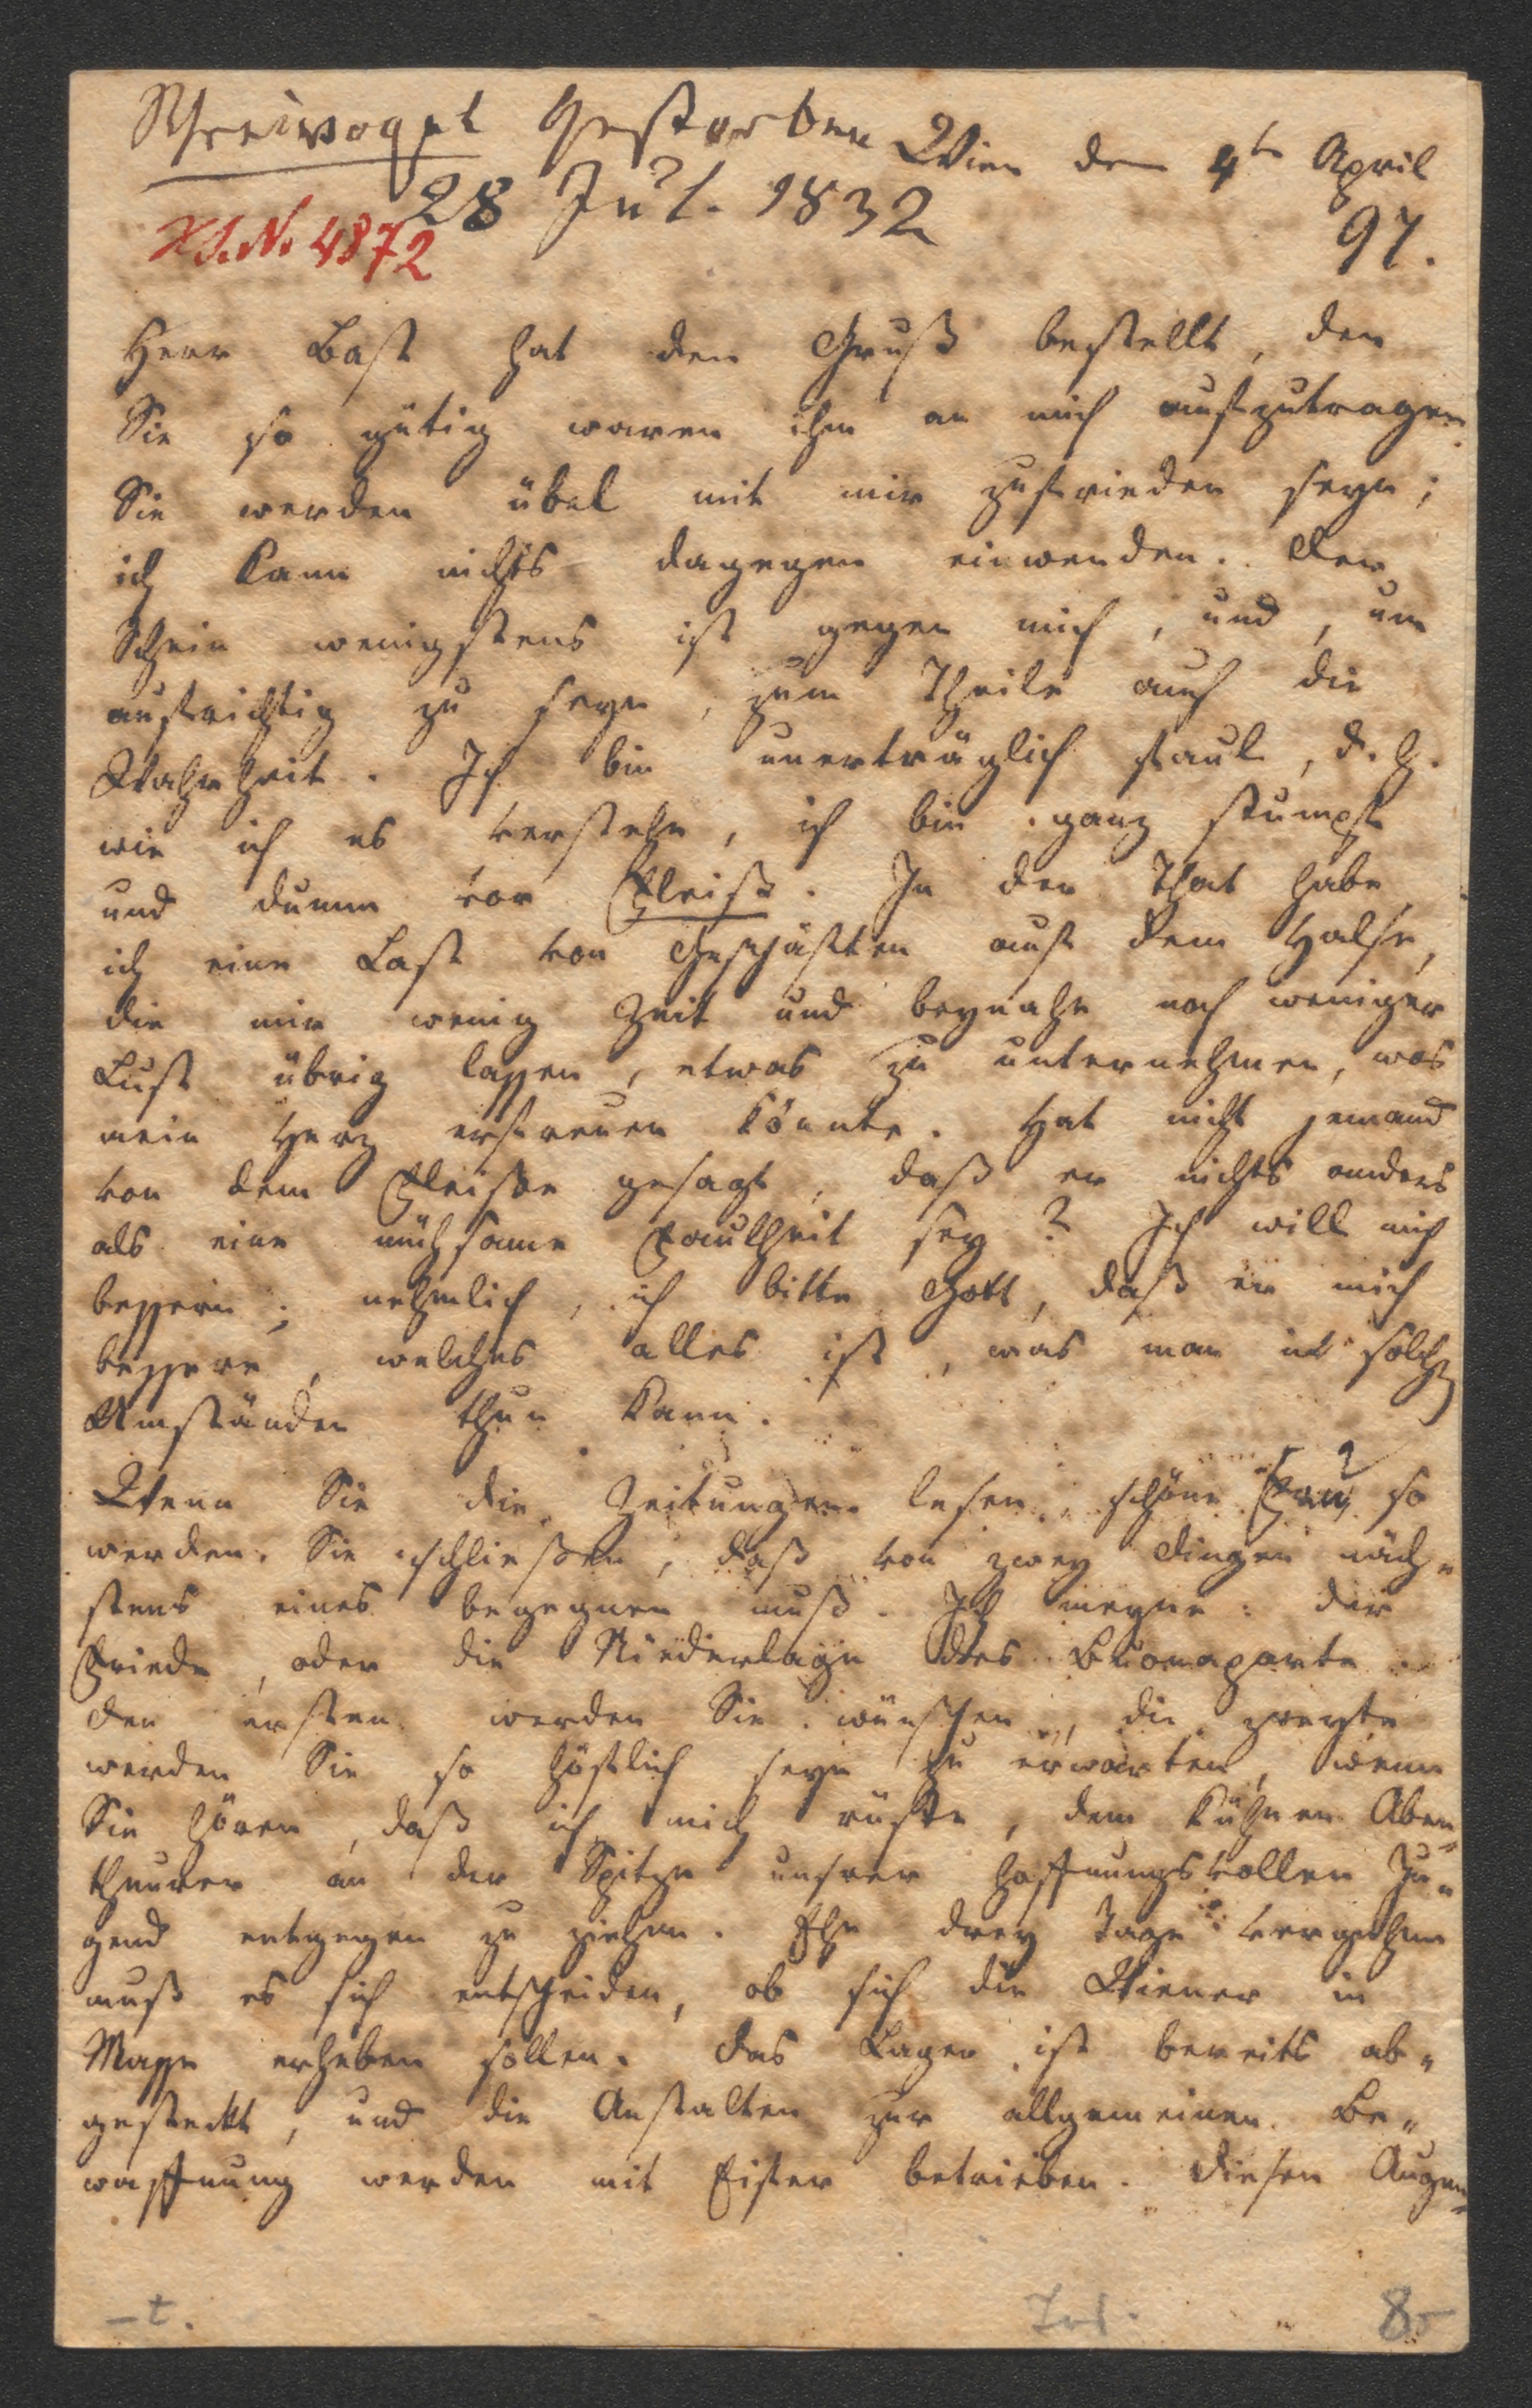 Schreivogel Gestorben Wien den 4t April
28 Jul. 1832
97.
H.I.N. 4872
Herr Bast hat den Gruß bestellt, den
Sie so gütig waren ihm an mich aufzutragen.
Sie werden übel mit mir zufrieden seyn;
ich kann nichts dagegen einwenden. Der
Schein wenigstens ist gegen mich, und, um
aufrichtig zu seyn, zum Theile auch die
Wahrheit. Ich bin unerträglich faul, d. h.
wie ich es verstehe, ich bin ganz stumpf
und dumm vor Fleiß. In der That habe
ich eine Last von Geschäften auf dem Halse,
die mir wenig Zeit und beynahe noch weniger
Lust übrig lassen, etwas zu unternehmen, was
mein Herz erfreuen könnte. Hat nicht jemand
von dem Fleiße gesagt, daß er nichts anders
als eine mühsame Faulheit sey? Ich will mich
bessern; nehmlich, ich bitte Gott, daß er mich
bessere, welches alles ist, was man in solchen
Umständen thun kann.
Wenn Sie die Zeitungen lesen, schöne Frau, so
werden Sie schließen, daß von zwey Dingen näch-
stens eines begegnen muß. Ich meyne: der
Friede, oder die Niederlage des Buonaparte.
Den ersten werden Sie wünschen, die zweyte
werden Sie so höflich seyn zu erwarten, wenn
Sie hören, daß ich mich rüste, dem kühnen Aben-
theurer an der Spitze unsrer hoffnungsvollen Ju-
gend entgegen zu ziehen. Ehe drey Tage vergehen
muß es sich entscheiden, ob sich die Wiener in
Masse erheben sollen. Das Lager ist bereits ab-
gesteckt, und die Anstalten zur allgemeinen Be-
waffnung werden mit Eifer betrieben. Diesen Augen-
-t.
8-